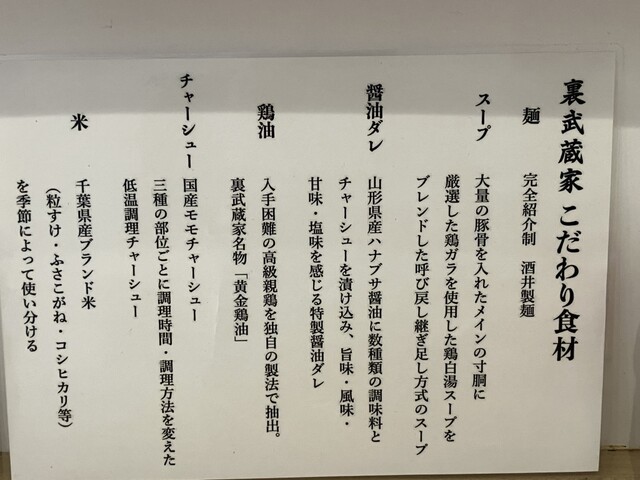 裏武蔵家 こだわり食材
麺
完全紹介制　酒井製麺
スープ
大量の豚骨を入れたメインの寸胴に
厳選した鶏ガラを使用した鶏白湯スープを
ブレンドした呼び戻し継ぎ足し方式のスープ
醤油ダレ
山形県産ハナブサ醤油に数種類の調味料と
チャーシューを漬け込み、旨味・風味・
甘味・塩味を感じる特製醤油ダレ
鶏油
入手困難の高級親鶏を独自の製法で抽出。
裏武蔵家名物「黄金鶏油」
チャーシュー
国産モモチャーシュー
三種の部位ごとに調理時間・調理方法を変えた
低温調理チャーシュー
米
千葉県産ブランド米
（粒すけ・ふさこがね・コシヒカリ等）
を季節によって使い分ける